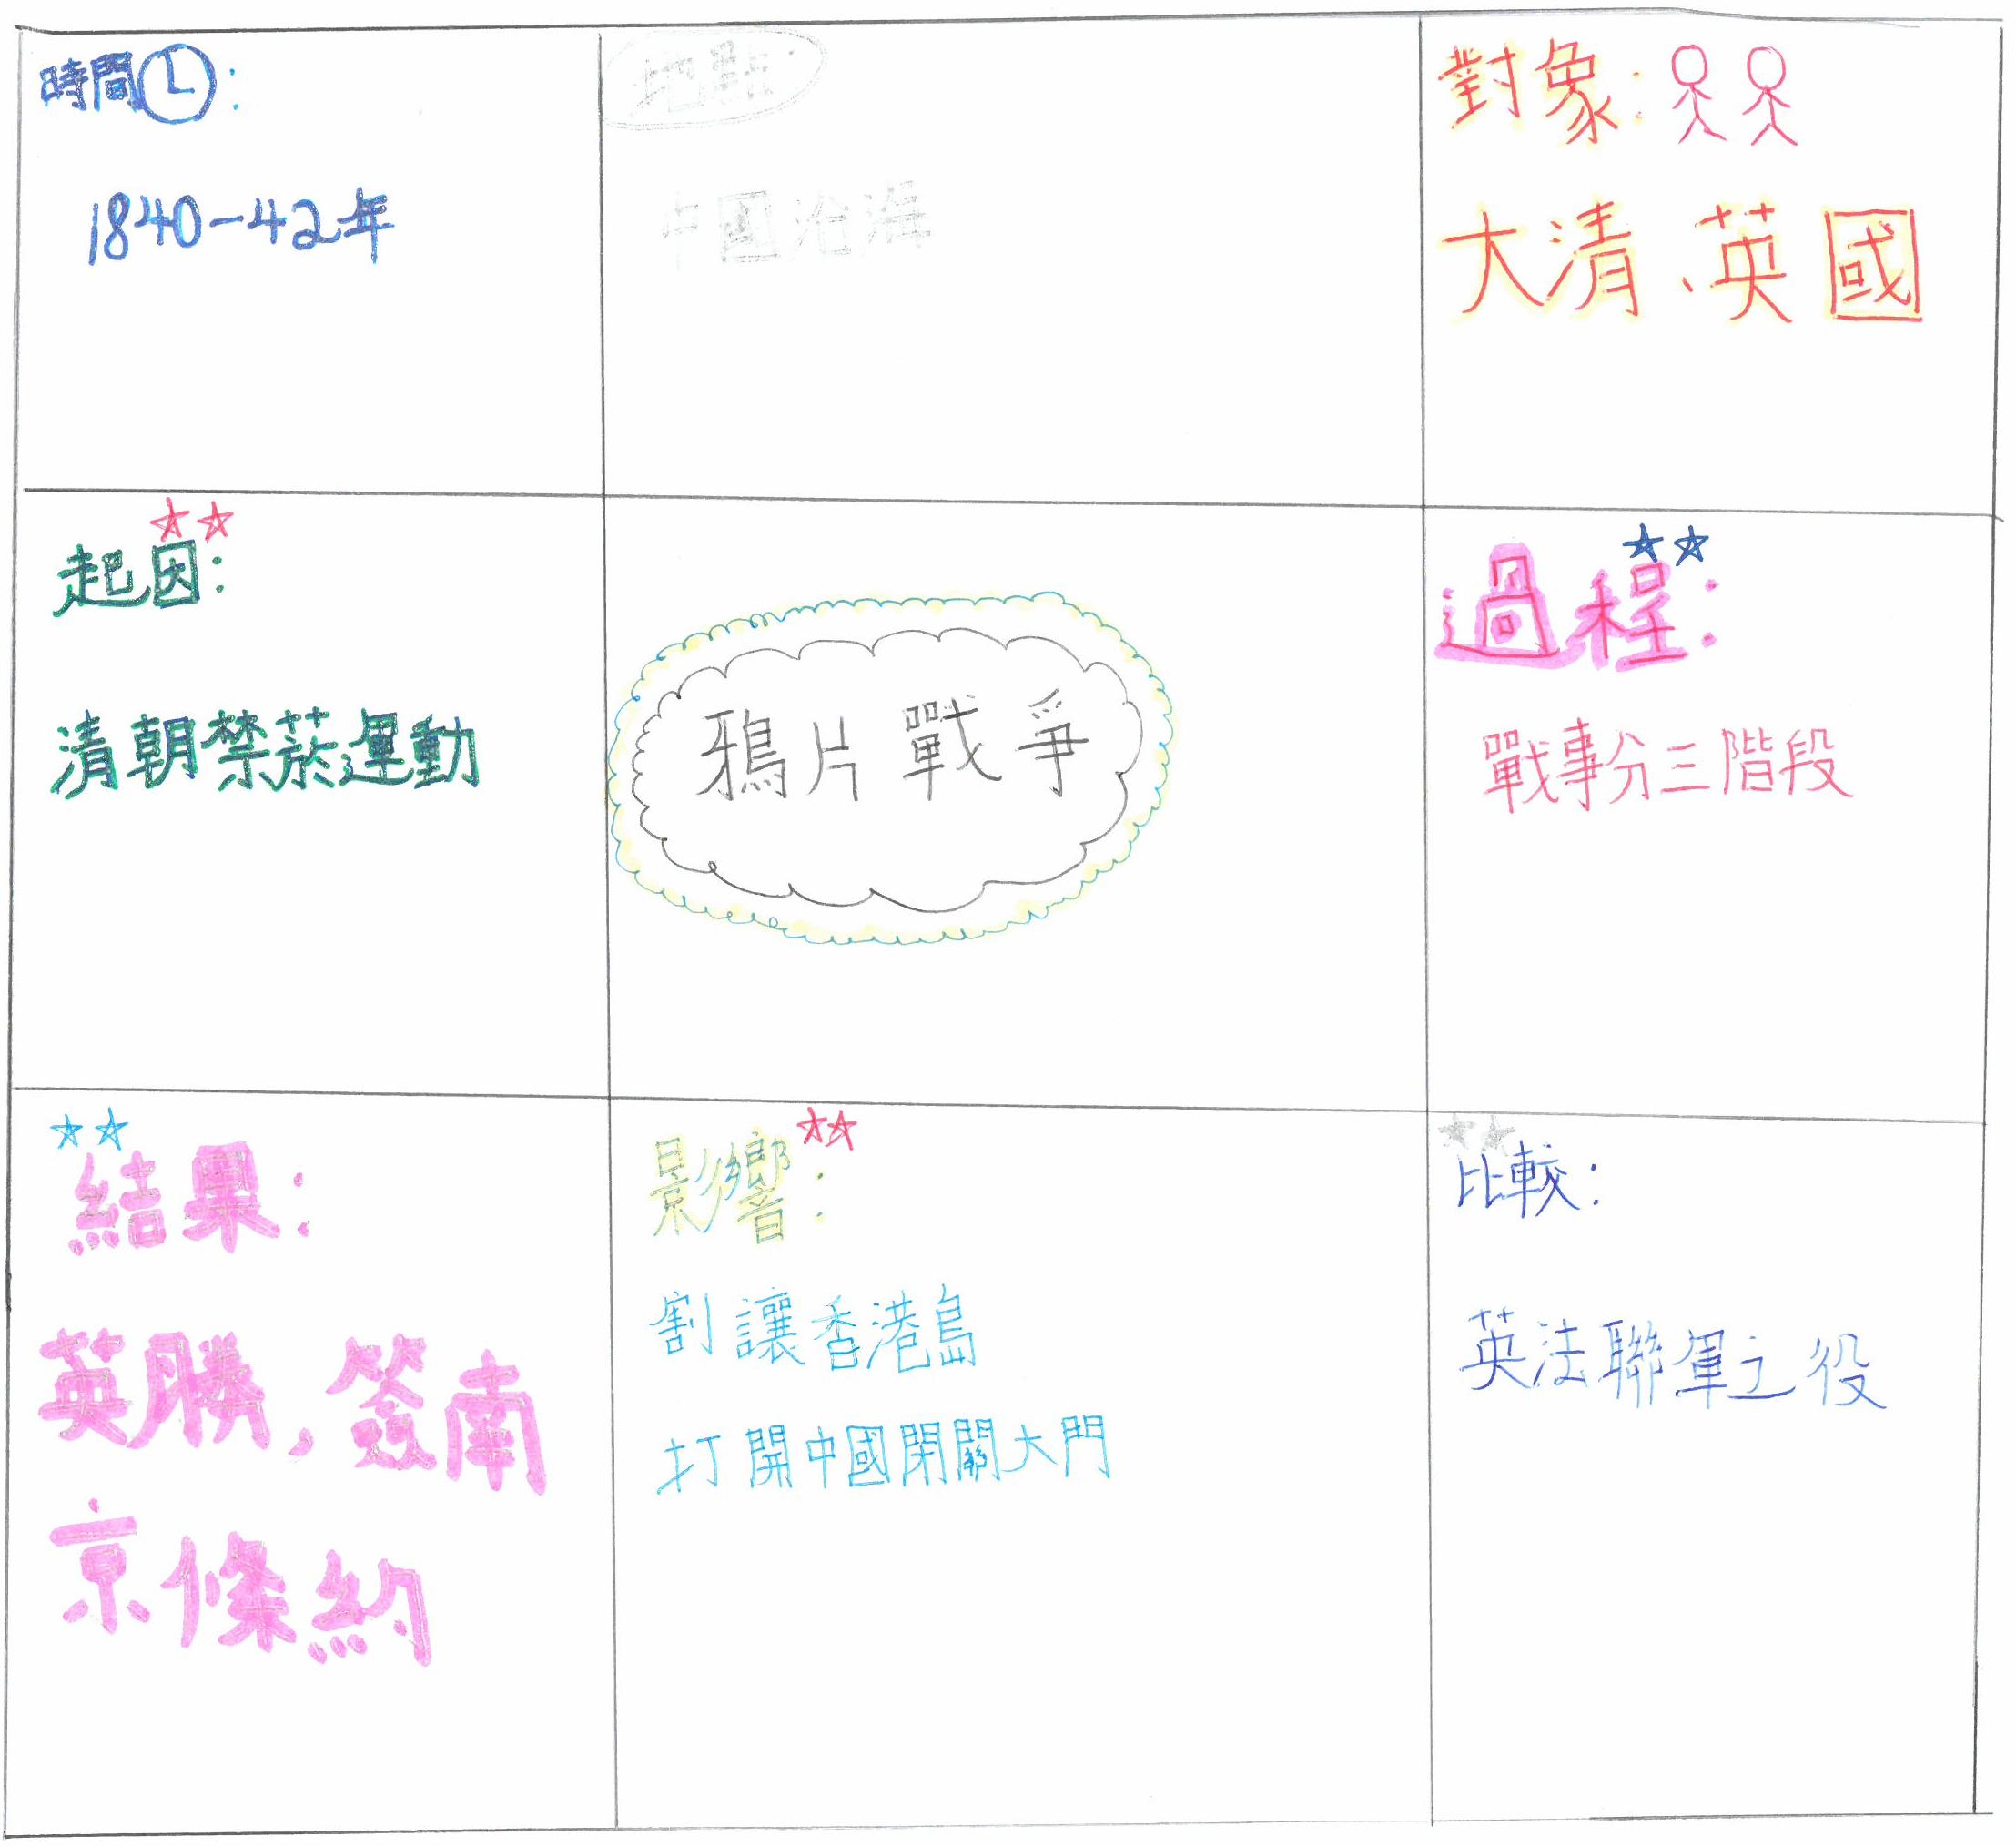 時間:
1840-42年
地點:
中國沿海
對象:
大清、英國
起因:
清朝禁菸運動
鴉片戰爭
過程:
戰事分三階段
結果:
英勝,簽南
京條約
影響:
割讓香港島
打開中國閉關大門
比較:
英法聯軍之役